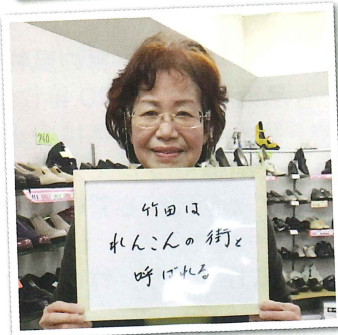 240
竹田は
れんこんの街と
呼ばれる